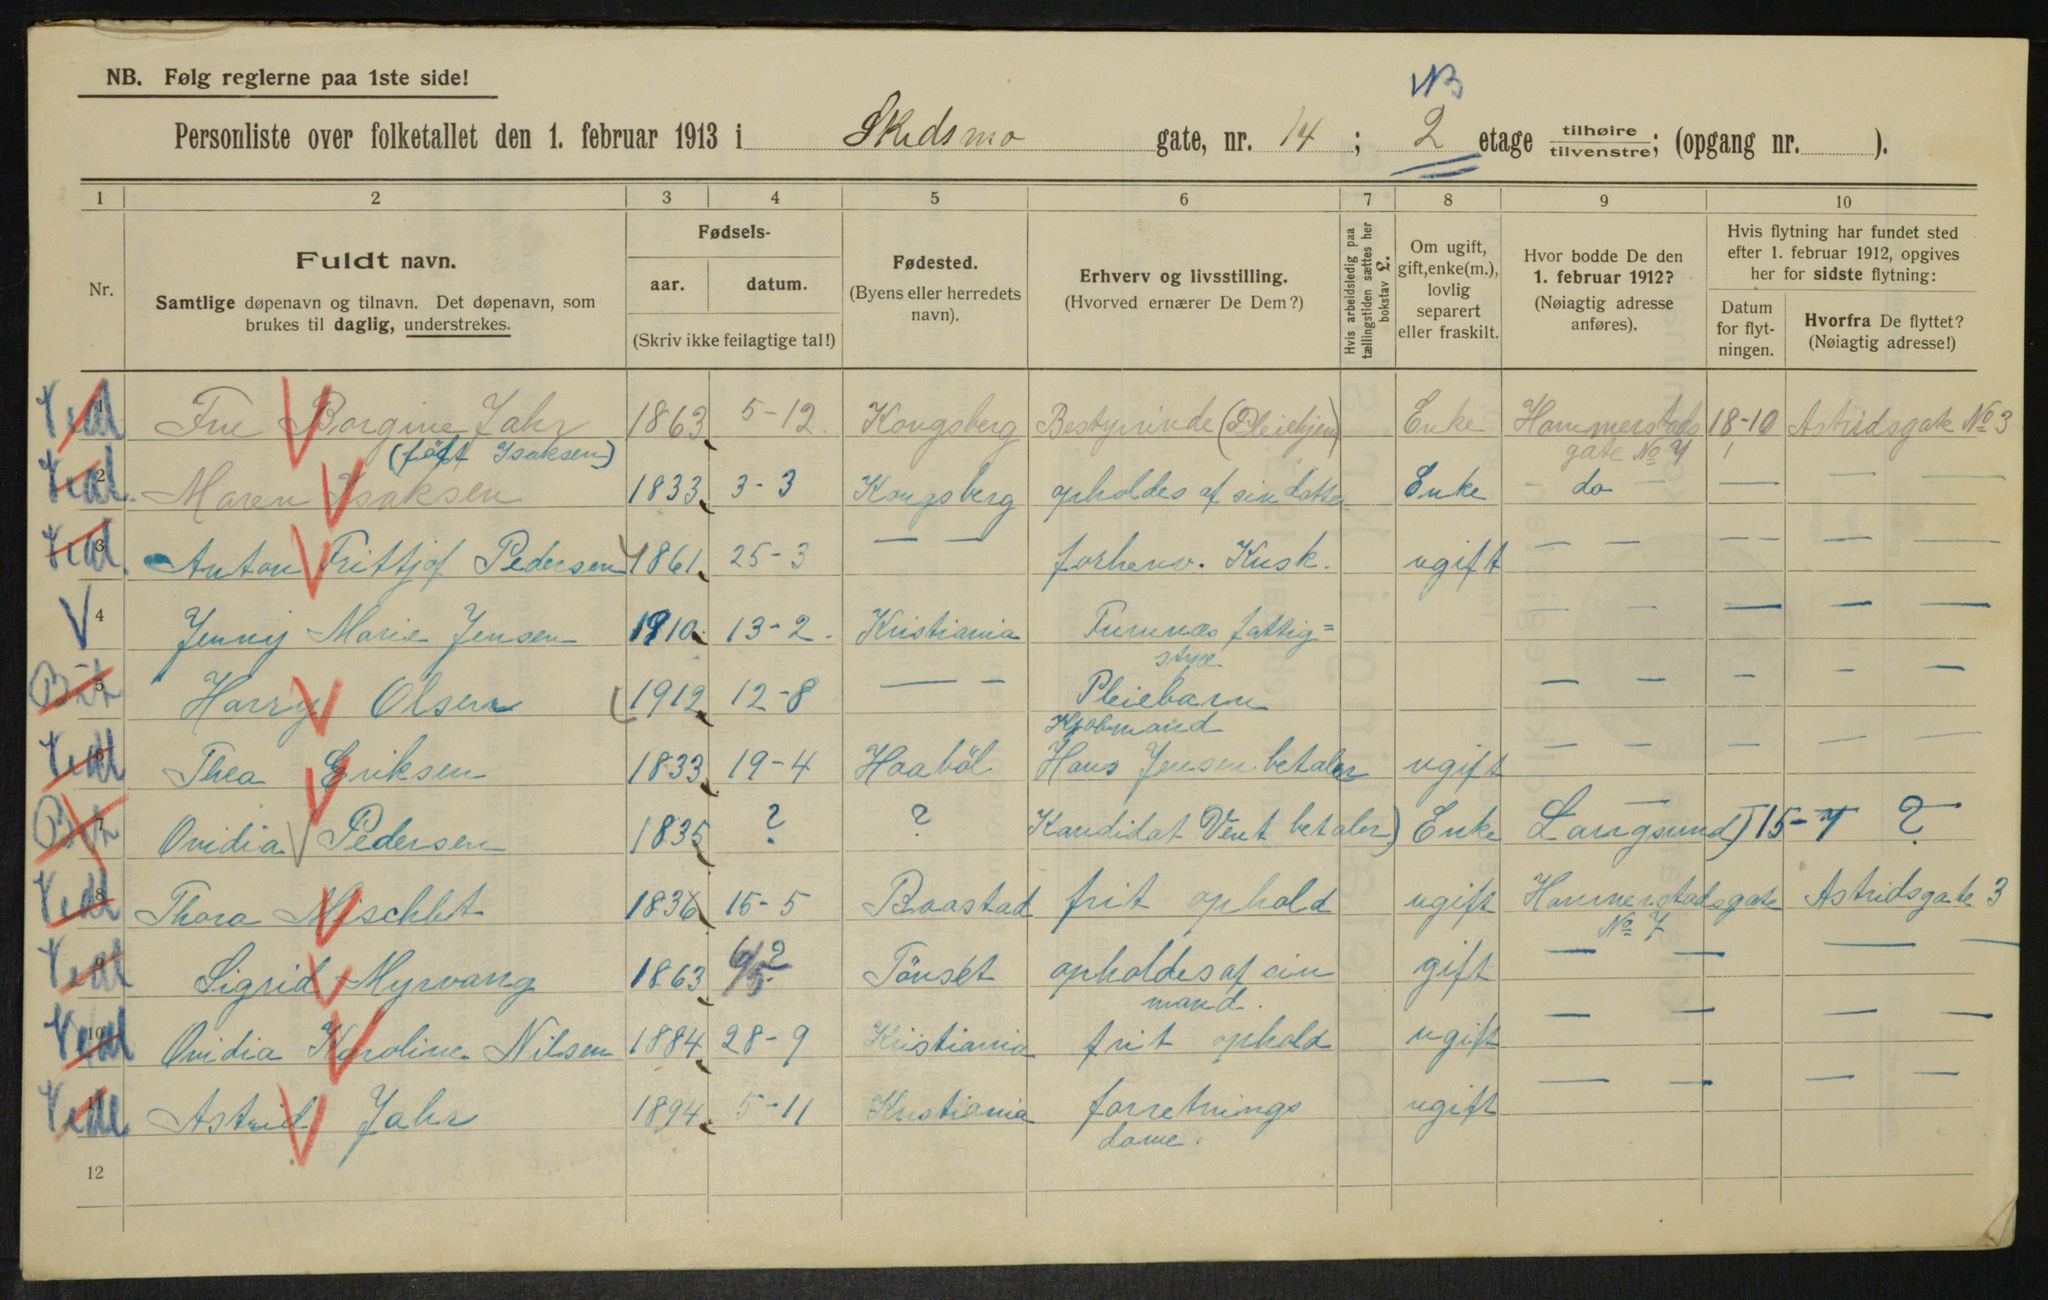 NB. Følg reglerne paa 1ste side!
NB
Personliste over folketallet den 1. februar 1913 i Skedsmo gate, nr. 14; 2 etage tilhøire/tilvenstre; (opgang nr. ).
1 2 3 4 5 6 7 8 9 10
Nr.
Fuldt navn.
Samtlige døpenavn og tilnavn. Det døpenavn, som
brukes til daglig, understrekes.
Fødsels-
aar. datum.
(Skriv ikke feilagtige tal!)
Fødested.
(Byens eller herredets
navn).
Erhverv og livsstilling.
(Hvorved ernærer De Dem?)
Hvis arbeidsledig paa
tællingstiden sættes her
bokstav L.
Om ugift,
gift, enke(m.),
lovlig
separert
eller fraskilt.
Hvor bodde De den
1. februar 1912?
(Nøiagtig adresse
anføres).
Hvis flytning har fundet sted
efter 1. februar 1912, opgives
her for sidste flytning:
Datum
for flyt-
ningen.
Hvorfra De flyttet?
(Nøiagtig adresse!)
1 Fru Borgine Jahr 1863 5-12 Kongsberg Bestyrinde (Pleiehjem) Enke Hammerstads 18-10 Astridsgate No 3
(født Isaksen) gate No 7
2 Maren Isaksen 1833 3-3 Kongsberg opholdes af sin datter Enke do — — —
3 Anton Frittjof Pedersen 1861 25-3 — — forhenv. Kusk. ugift — — — — —
4 Jenny Marie Jensen 1910 13-2 Kristiania Furnæs fattig= — — — — —
styre
5 Harry Olsen 1912 12-8 — — Pleiebarn — — — — —
Kjøbmand
6 Thea Eriksen 1833 19-4 Haaböl Hans Jensen betaler ugift — — — — —
7 Ovidia Pedersen 1835 ? ? Kandidat Vent betaler) Enke Langsund 15-7 ?
8 Thora Meschbt 1836 15-5 Baastad frit ophold ugift Hammerstadsgate Astridsgate 3
No 7
9 Sigrid Myrvang 1863 6/2 Tönset opholdes af sin gift — — — —
mand.
10 Ovidia Karoline Nilsen 1884 28-9 Kristiania frit ophold ugift — — — —
11 Astrid Jahr 1894 5-11 Kristiania forretnings ugift — — — —
dame.
12